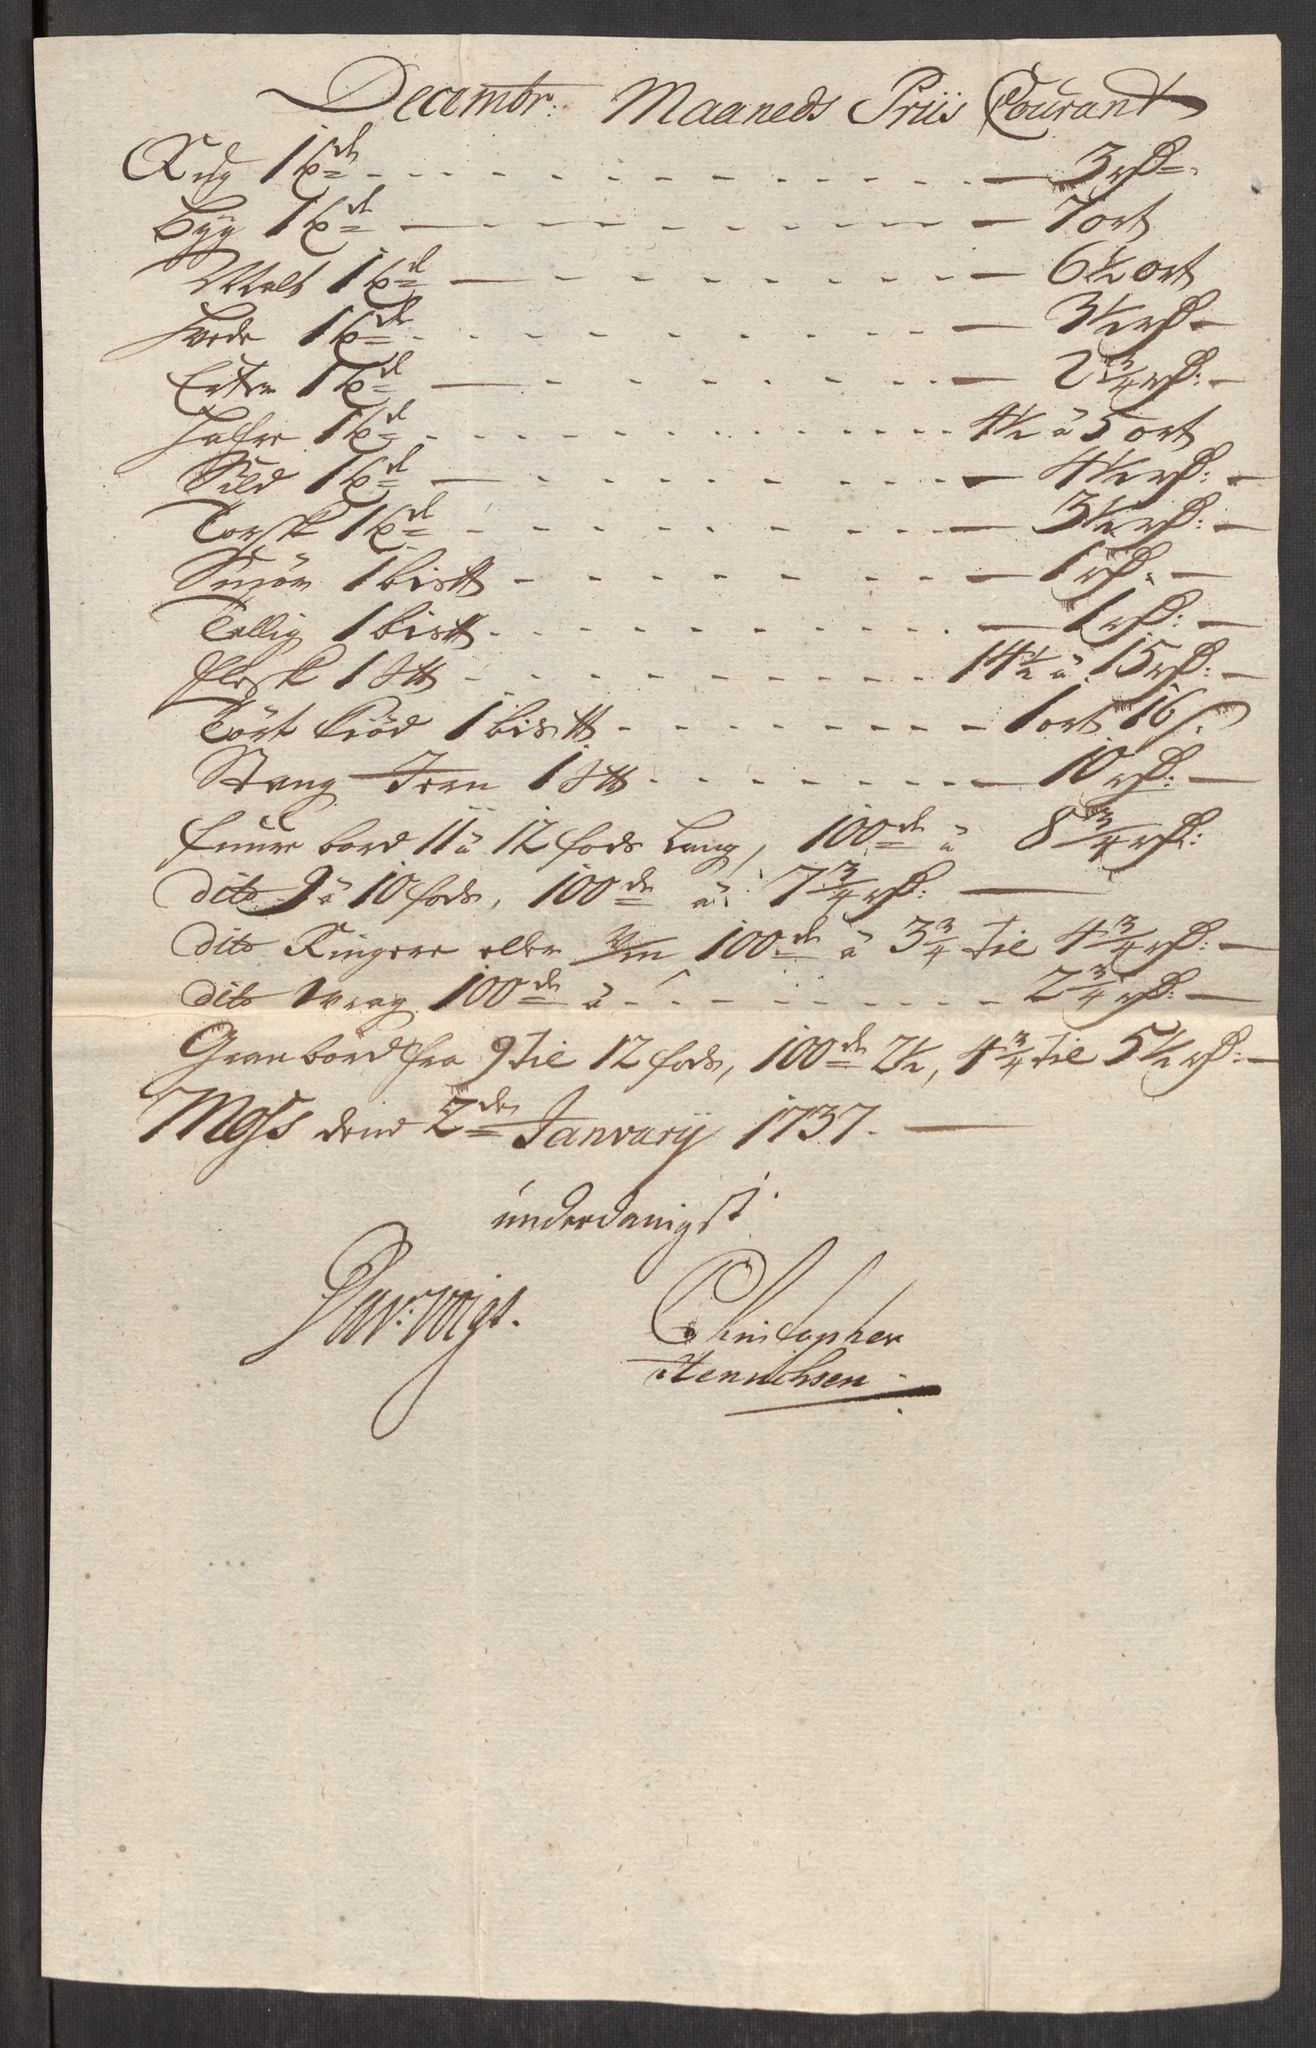 Decembr: Maaneds Priis Courant
Rug 1 tde - 3 rd:
Byg 1 td - 7 ort
Malt 1 td - 6½ ort
Hvede 1 tde - 3½ rd:
Erter 1 td - 2¾ rd:
Hafre 1 td - 4½ a 5 ort
Sild 1 td - 4½ rd:
Torsk 1 td - 3½ rd:
Smör 1 bis℔ - 1 rd:
Tallig 1 bis℔ - 1 rd:
Flesk 1 S℔ - 14½ a 15 rd:
Tört Kiöd 1 bis℔ - 1 ort 16 s.
Stang Jern 1 S℔ - 10 rd:
Fuure bord 11 a 12 fods Lang, 100de a 8¾ rd:
dito 9 a 10 fods, 100de a: 7¾ rd:
dito Ringere eller 100de a 3¾ til 4¾ rd:
dito Wrag 100de a - 2¾ rd:
Gran bord fra 9 til 12 fods, 100de 2½, 4¾ til 5½ rd:
Moss dend 2den Janvarij 1737.
underdanigst
Christopher
Henrichsen